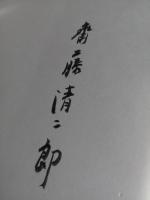 齋藤清二郎